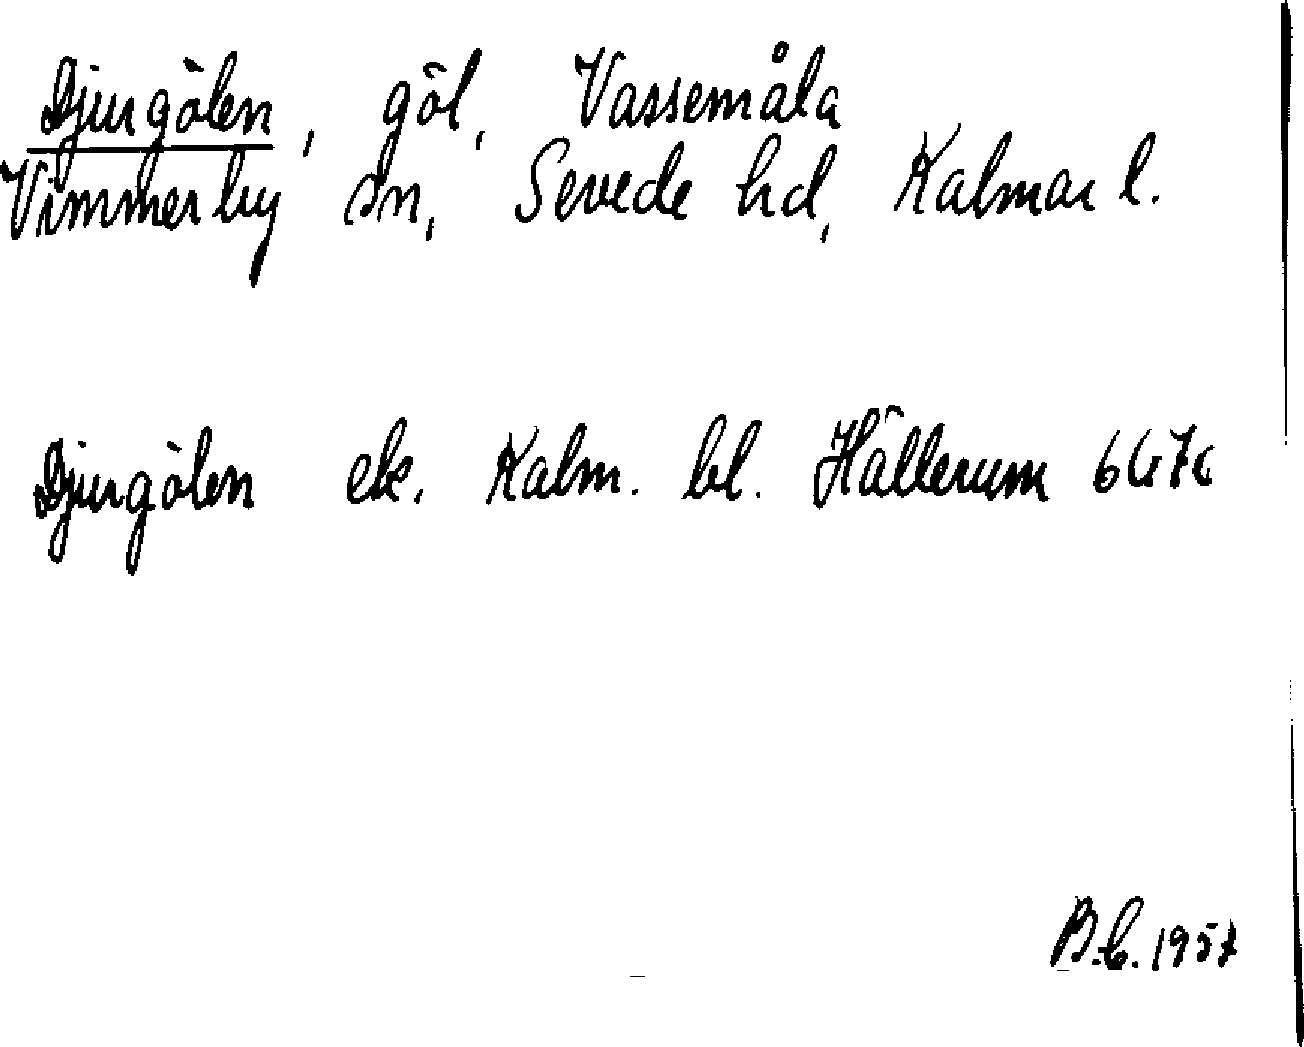 Djurgölen, göl, Vassemåla
Vimmerby sn, Sevede hd, Kalmar l.
Djurgölen ek. Kalm. bl. Hällerum
1957